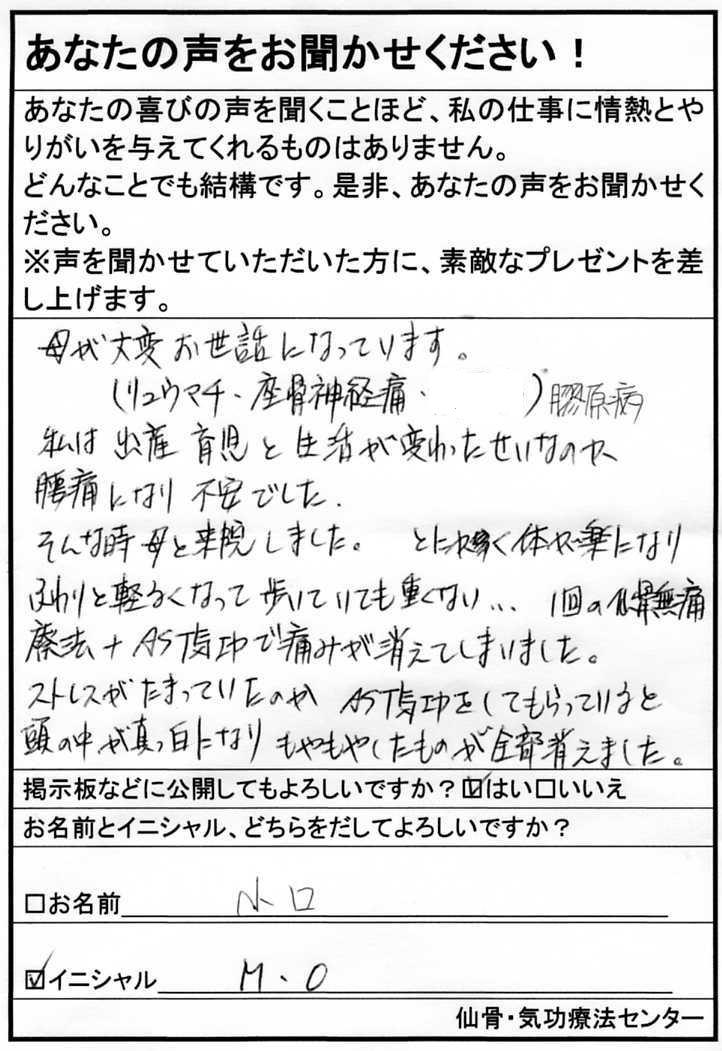 あなたの声をお聞かせください！
あなたの喜びの声を聞くことほど、私の仕事に情熱とや
りがいを与えてくれるものはありません。
どんなことでも結構です。是非、あなたの声をお聞かせく
ださい。
※声を聞かせていただいた方に、素敵なプレゼントを差
し上げます。
母が大変お世話になっています。
(リュウマチ・座骨神経痛・ ) 膠原病
私は出産育児と生活が変わったせいなのか、
腰痛になり不安でした.
そんな時母と来院しました。 とにかく体が楽になり
ふわりと軽るくなって歩いていても重くない… 1回の仙骨無痛
療法+AST気功で痛みが消えてしまいました。
ストレスがたまっていたのか AST気功をしてもらっていると
頭の中が真っ白になりもやもやしたものが全部消えました。
掲示板などに公開してもよろしいですか？☑はい□いいえ
お名前とイニシャル、どちらをだしてよろしいですか？
□お名前 小口
☑イニシャル M・O
仙骨・気功療法センター